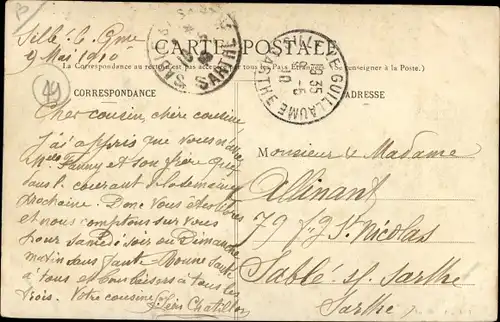 Sillé-l-Gme
9 Mai 1910
CARTE POSTALE
La Correspondance au recto n'est pas acceptée par tous les Pays Étrangers (Se renseigner à la Poste.)
CORRESPONDANCE
ADRESSE
SARTHE
SILLÉ LE GUILLAUME SARTHE
19 35
9 - 5
10
49
Cher cousin, chère cousine
J'ai appris que vous n'avez
Melle Fanny et son frère que
dans l. courant de la semaine
prochaine. Donc vous êtes libres
et nous comptons sur vous
pour samedi soir ou Dimanche
matin sans faute. Bonne santé
à tous et bons baisers à tous les
trois. Votre cousine
Chatillon
Monsieur & Madame
Allinant
79 f.g St Nicolas
Sablé s/ Sarthe
Sarthe